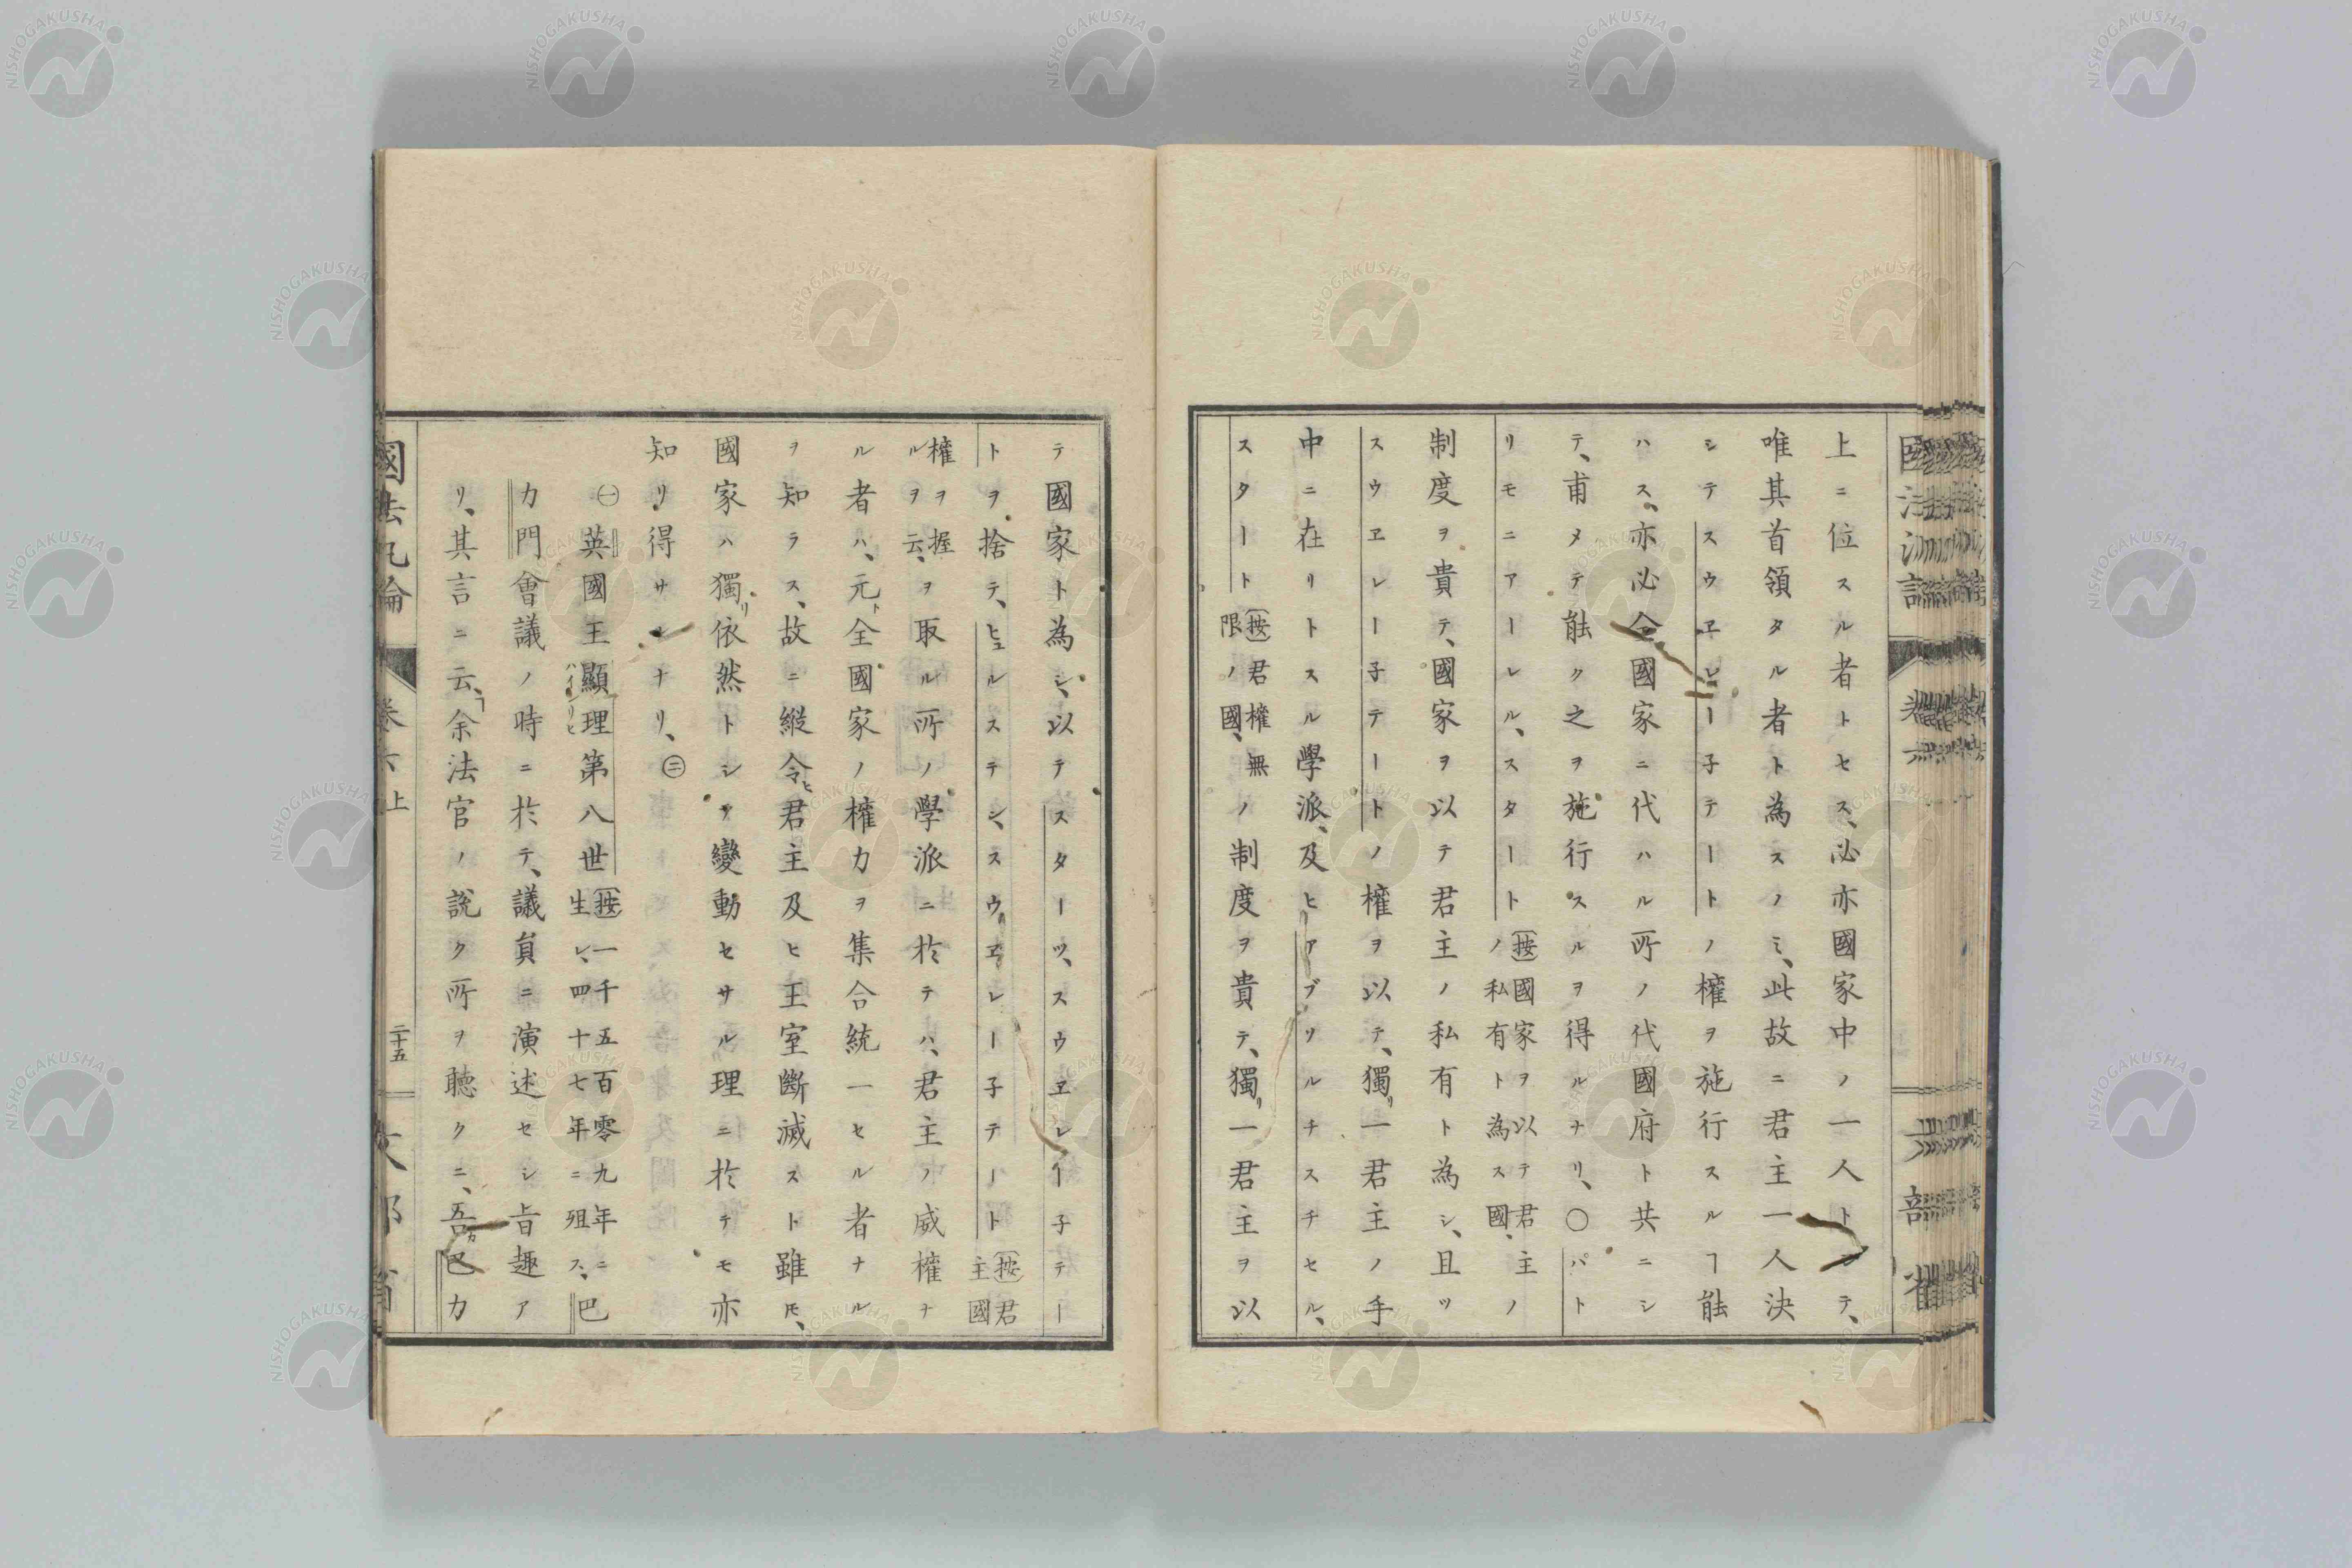 上ニ位スル者トセス、必亦國家中ノ一人トシテ、
唯其首領タル者ト為スノミ、此故ニ君主一人決
シテスウヱレー子テートノ權ヲ施行スルヿ能
ハス、亦必全國家ニ代ハル所ノ代國府ト共ニシ
テ、甫メテ能ク之ヲ施行スルヲ得ルナリ、〇パト
リモニアーレル、スタート(按國家ヲ以テ君主ノ
ノ私有ト為ス國、
制度ヲ貴テ、國家ヲ以テ君主ノ私有ト為シ、且ツ
スウヱレー子テートノ權ヲ以テ、獨リ一君主ノ手
中ニ在リトスル學派、及ヒアブソルチスチセル、
スタート(按君權無
限ノ國、ノ制度ヲ貴テ、獨リ一君主ヲ以
テ國家ト為シ、以テスターツ、スウヱレー子テー
トヲ捨テ、ヒュルステン、スウヱレー子テート(按君
主國
權ヲ握
ルヲ云、ヲ取ル所ノ學派ニ於テハ、君主ノ威權ナ
ル者ハ、元ト全國家ノ權力ヲ集合統一セル者ナル
ヲ知ラス、故ニ縱令ヒ君主及ヒ王室斷滅スト雖𪜈、
國家ハ獨リ依然トシテ變動セサル理ニ於テモ亦
知リ得サルナリ、㊁
㊀英國王顯理第八世(按一千五百零九年ニ
生レ、四十七年ニ殂ス、巴
ハインリヒ
力門會議ノ時ニ於テ、議員ニ演述セシ旨趣ア
リ、其言ニ云、「余法官ノ說ク所ヲ聽クニ、吾カ巴力
國法汎論
卷六上
二十五
文部省
國法汎論
卷六
文部省
NISHOGAKUSHA